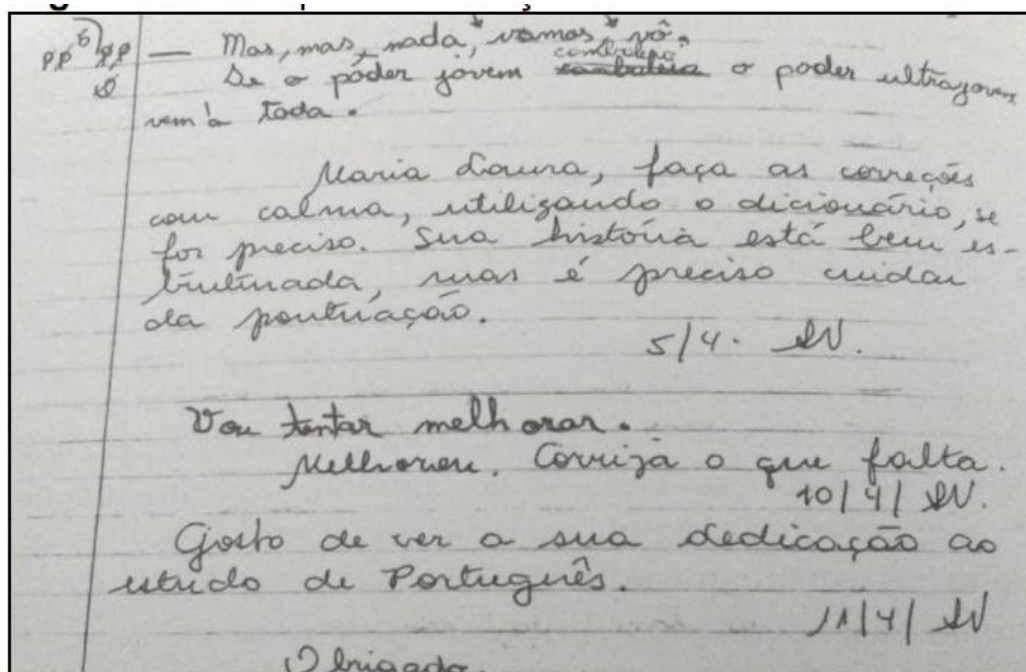 — Mas, mas, nada, vamos, vô.
Se o poder jovem o poder ultrajovem
vem à toda.
Maria Laura, faça as correções
com calma, utilizando o dicionário, se
for preciso. Sua história está bem es-
truturada, mas é preciso cuidar
da pontuação.
5/4.
Vou tentar melhorar.
Melhorou. Corrija o que falta.
10/4/
Gosto de ver a sua dedicação ao
estudo de Português.
11/4/
Obrigado.